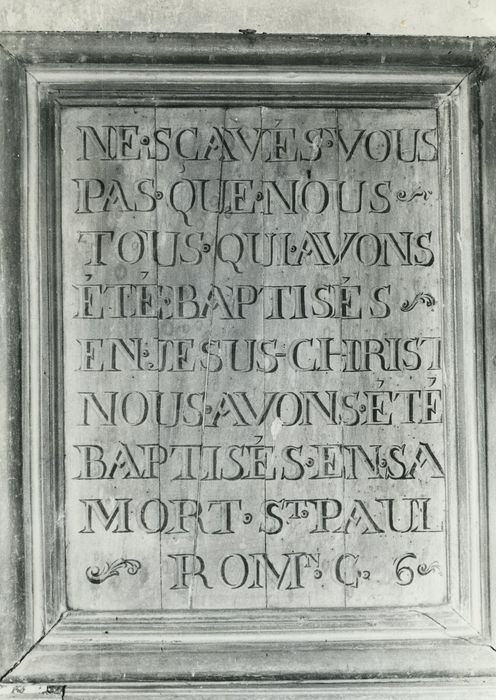 NE·SÇAVÉS·VOUS
PAS·QUE·NOUS
TOUS·QUI·AVONS
ÉTÉ·BAPTISÉS
EN·JESUS-CHRIST
NOUS·AVONS·ÉTÉ
BAPTISÉS·EN·SA
MORT·ST·PAUL
ROMN·C·6